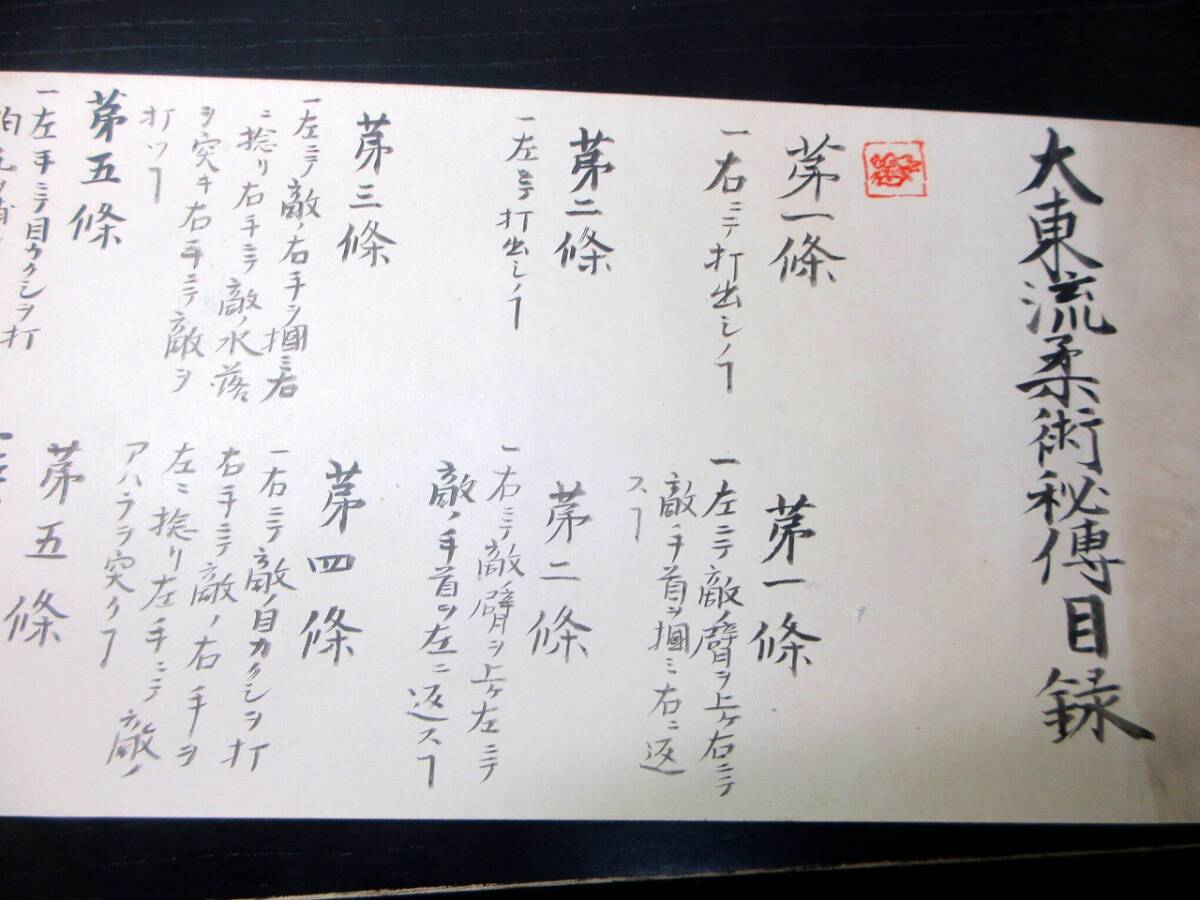 大東流柔術秘傳目録
第一條
一右ニテ打出シノヿ
第一條
一左ニテ敵ノ臂ヲ上ケ右ニテ
敵ノ手首ヲ掴ミ右ニ返
スヿ
第二條
一左手打出シノヿ
第二條
一右ニテ敵ノ臂ヲ上ケ左ニテ
敵ノ手首ヲ左ニ返スヿ
第三條
一左ニテ敵ノ右手ヲ掴ミ右
ニ捻リ右手ニテ敵ノ水落
ヲ突キ右手ニテ敵ヲ
打ツヿ
第四條
一右ニテ敵ノ目カクシヲ打
右手ニテ敵ノ右手ヲ
左ニ捻リ左手ニテ敵ノ
アハラヲ突クヿ
第五條
一左手ニテ目カクシヲ打
第五條